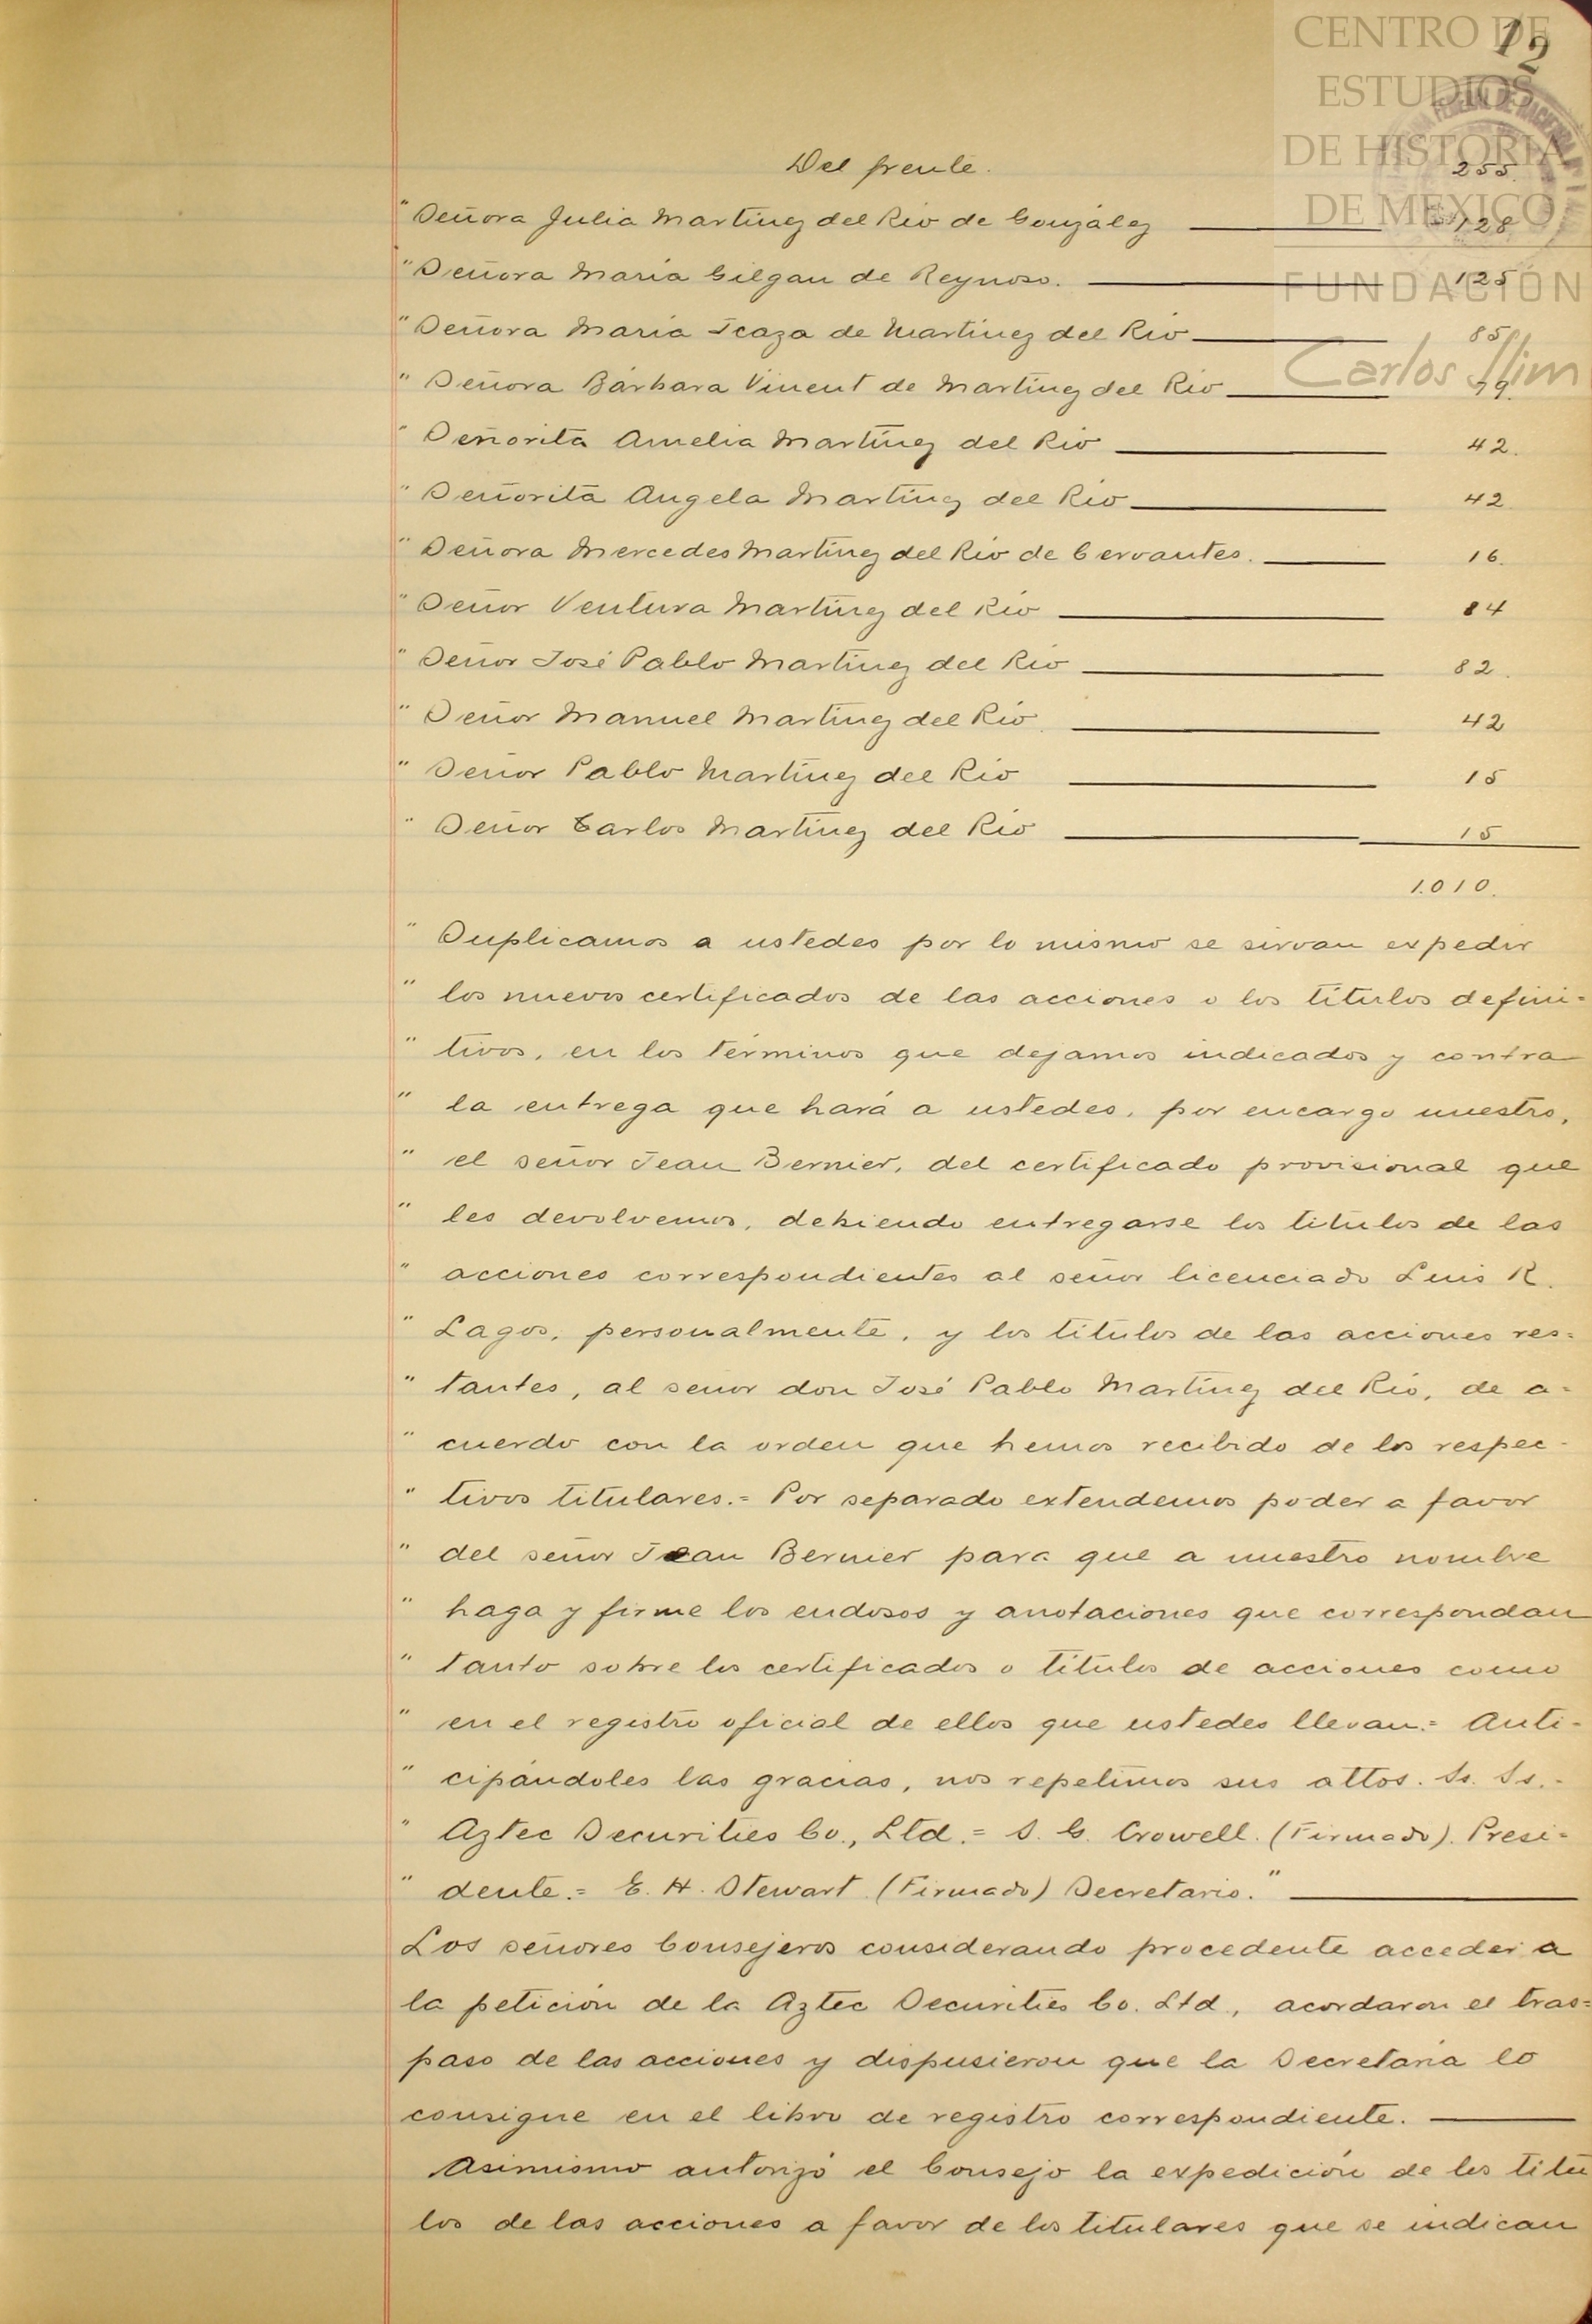 CENTRO DE
ESTUDIOS
DE HISTORIA
DE MEXICO
FUNDACIÓN
Carlos Slim
12
Del frente. 255.
" Señora Julia Martínez del Rio de González 128
" Señora María Gilgan de Reynoso. 125
" Señora María Icaza de Martínez del Rio 85
" Señora Bárbara Vinent de Martínez del Rio 79.
" Señorita Amelia Martínez del Rio 42.
" Señorita Angela Martínez del Rio 42
" Señora Mercedes Martínez del Rio de Cervantes. 16.
" Señor Ventura Martínez del Rio 84
" Señor José Pablo Martínez del Rio 82.
" Señor Manuel Martínez del Rio. 42
" Señor Pablo Martínez del Rio 15
" Señor Carlos Martínez del Rio 15
1.010.
" Suplicamos a ustedes por lo mismo se sirvan expedir
" los nuevos certificados de las acciones o los títulos defini=
" tivos, en los términos que dejamos indicados y contra
" la entrega que hará a ustedes, por encargo nuestro,
" el señor Jean Bernier, del certificado provisional que
" les devolvemos, debiendo entregarse los títulos de las
" acciones correspondientes al señor licenciado Luis R.
" Lagos, personalmente, y los títulos de las acciones res=
" tantes, al señor don José Pablo Martínez del Rio, de a=
" cuerdo con la orden que hemos recibido de los respec-
" tivos titulares.= Por separado extendemos poder a favor
" del señor Jean Bernier para que a nuestro nombre
" haga y firme los endosos y anotaciones que correspondan
" tanto sobre los certificados o títulos de acciones como
" en el registro oficial de ellos que ustedes llevan.= Anti-
" cipándoles las gracias, nos repetimos sus attos. Ss. Ss.=
" Aztec Securities Co., Ltd.= S. G. Crowell. (Firmado). Presi=
" dente.= E. H. Stewart (Firmado) Secretario."
Los señores Consejeros considerando procedente acceder a
la petición de la Aztec Securities Co. Ltd., acordaron el tras=
paso de las acciones y dispusieron que la Secretaría lo
consigne en el libro de registro correspondiente.
Asimismo autorizó el Consejo la expedición de los títu
los de las acciones a favor de los titulares que se indican